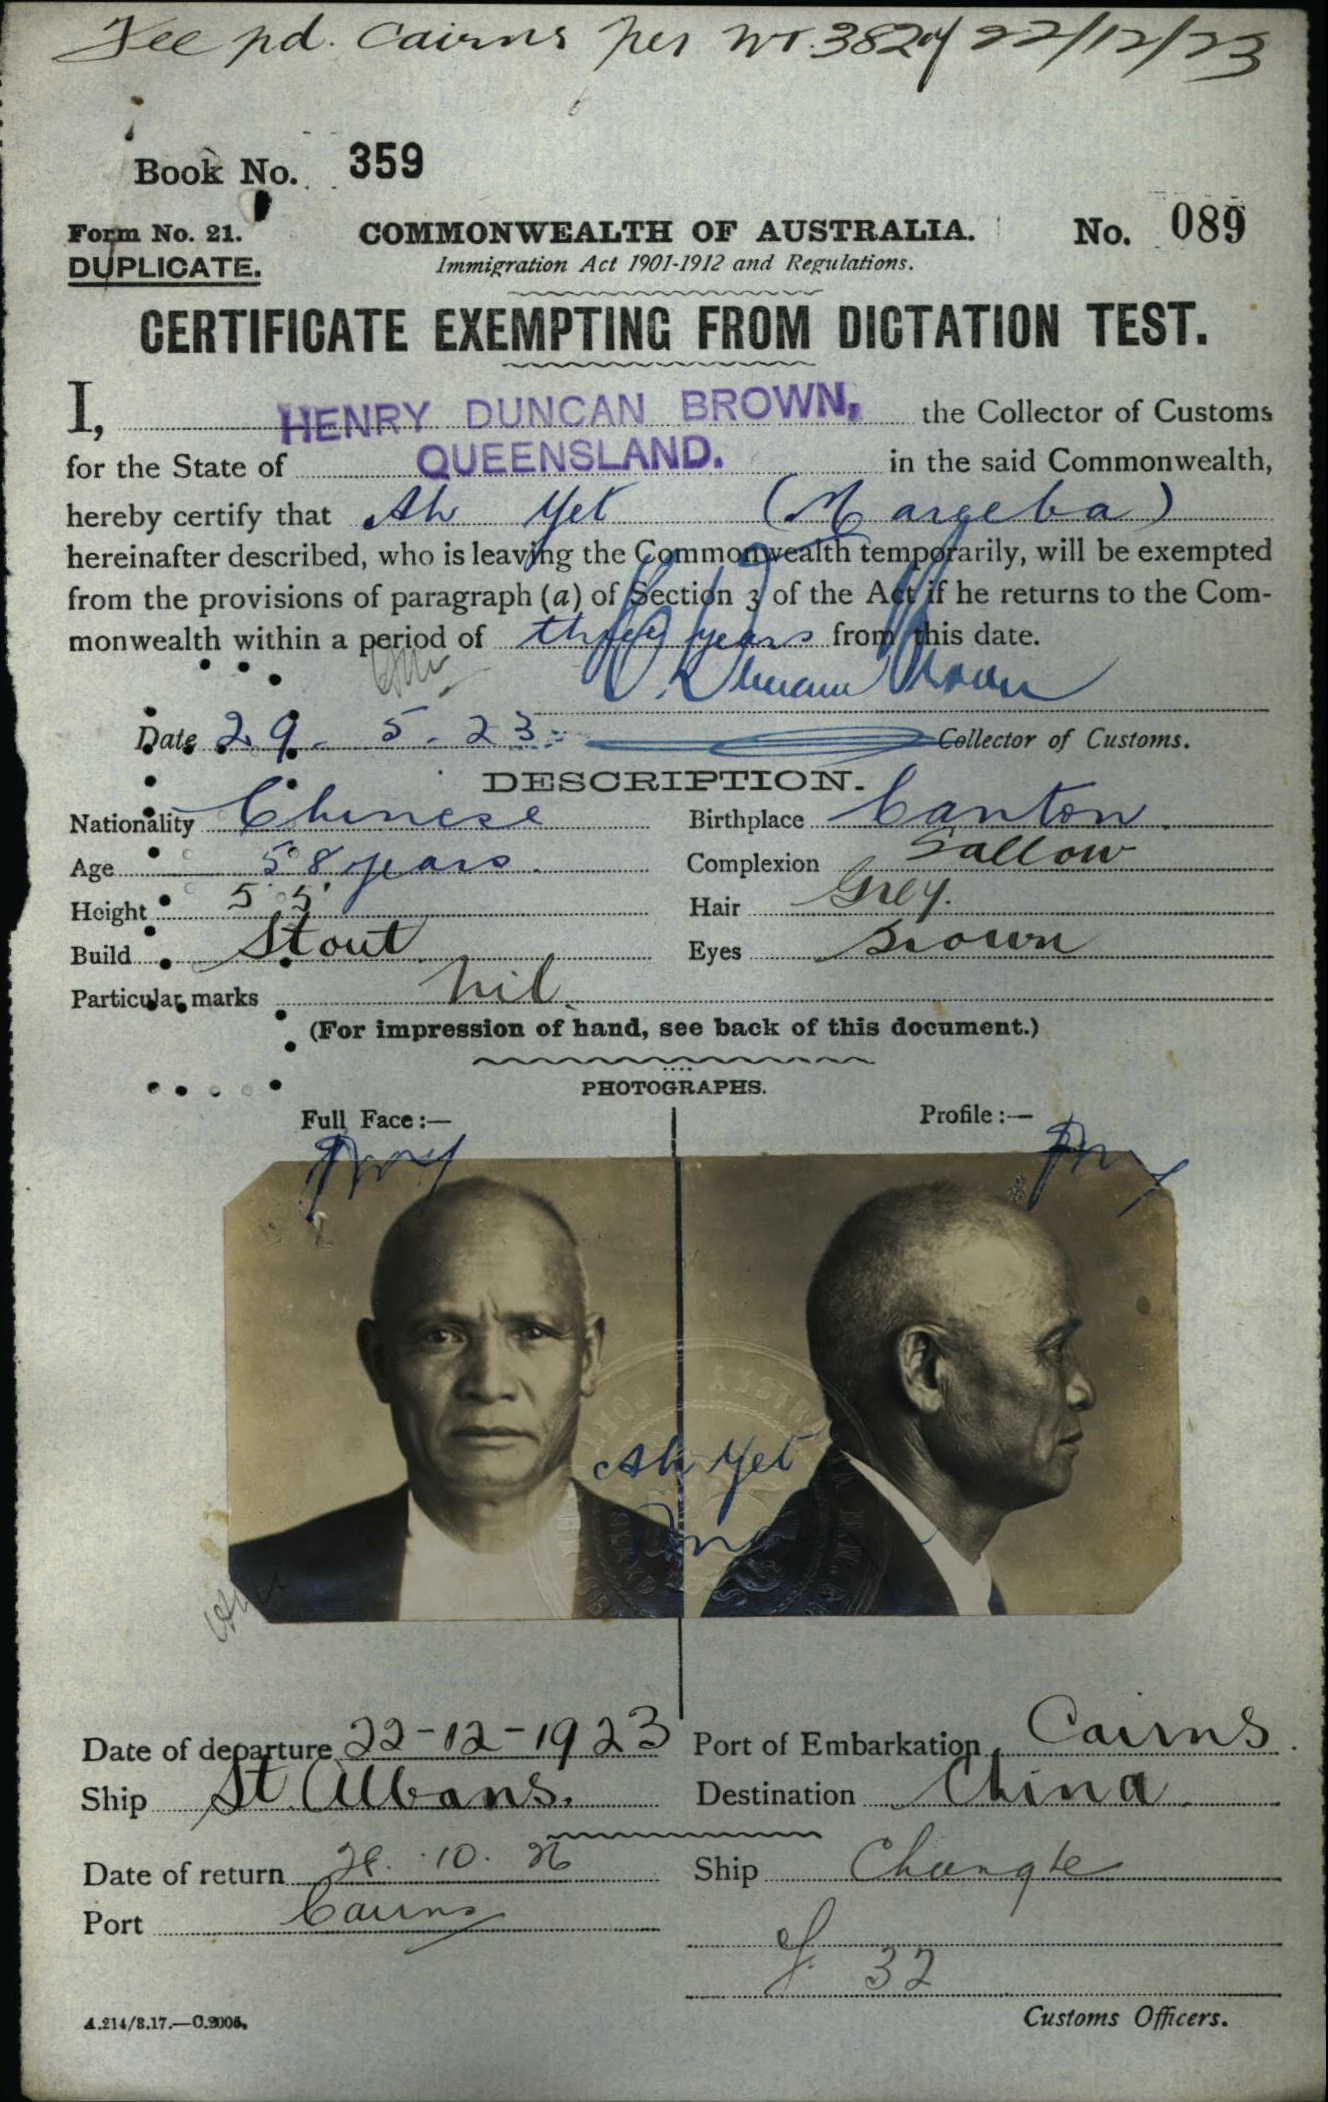 Fee pd. Cairns per WT. 3824 22/12/23
Book No. 359
Form No. 21.
COMMONWEALTH OF AUSTRALIA.
No. 089
DUPLICATE.
Immigration Act 1901-1912 and Regulations.
CERTIFICATE EXEMPTING FROM DICTATION TEST.
I, HENRY DUNCAN BROWN, the Collector of Customs
for the State of QUEENSLAND. in the said Commonwealth,
hereby certify that Ah Yet (Mareeba)
hereinafter described, who is leaving the Commonwealth temporarily, will be exempted
from the provisions of paragraph (a) of Section 3 of the Act if he returns to the Com-
monwealth within a period of three years from this date.
H. Duncan Brown
Date 29. 5. 23. Collector of Customs.
DESCRIPTION.
Nationality Chinese Birthplace Canton.
Age 58 years. Complexion Sallow
Height 5' 5" Hair Grey.
Build Stout. Eyes Brown
Particular marks nil.
(For impression of hand, see back of this document.)
PHOTOGRAPHS.
Full Face :— Profile :—
Ah Yet
Date of departure 22-12-1923 Port of Embarkation Cairns.
Ship St. Albans. Destination China.
Date of return 28. 10. 26 Ship Changte
Port Cairns
32
Customs Officers.
A.214/8.17.—C.2006.